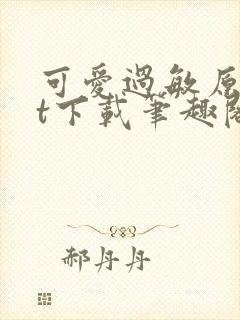 可愛過敏原
t下載筆趣閣
郝丹丹